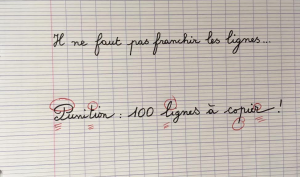 Il ne faut pas franchir les lignes...
Punition : 100 lignes à copier !